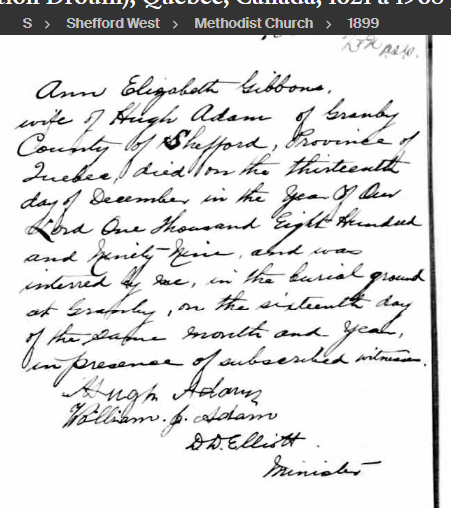 S > Shefford West > Methodist Church > 1899
Ann Elizabeth Gibbons,
wife of Hugh Adam of Granby
County of Shefford, Province of
Quebec, died on the thirteenth
day of December in the Year of Our
Lord One Thousand Eight Hundred
and Ninety-Nine, and was
interred by me, in the burial ground
at Granby, on the sixteenth day
of the same month and Year,
in presence of subscribed witnesses.
Hugh Adam
William. J. Adam
D.D. Elliott.
Minister